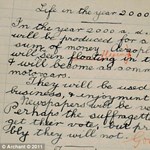 Life in the year 2000
In the year 2000 a.d.
will be produced for a
sum of money. Aeropl
will be seen floating in t
& will become as comm
motorcars.
They will be used
business, & enjoyment
Newspapers will be
Perhaps the suffraget
get their vote, but pr
bly they will not.
© Archant © 2011